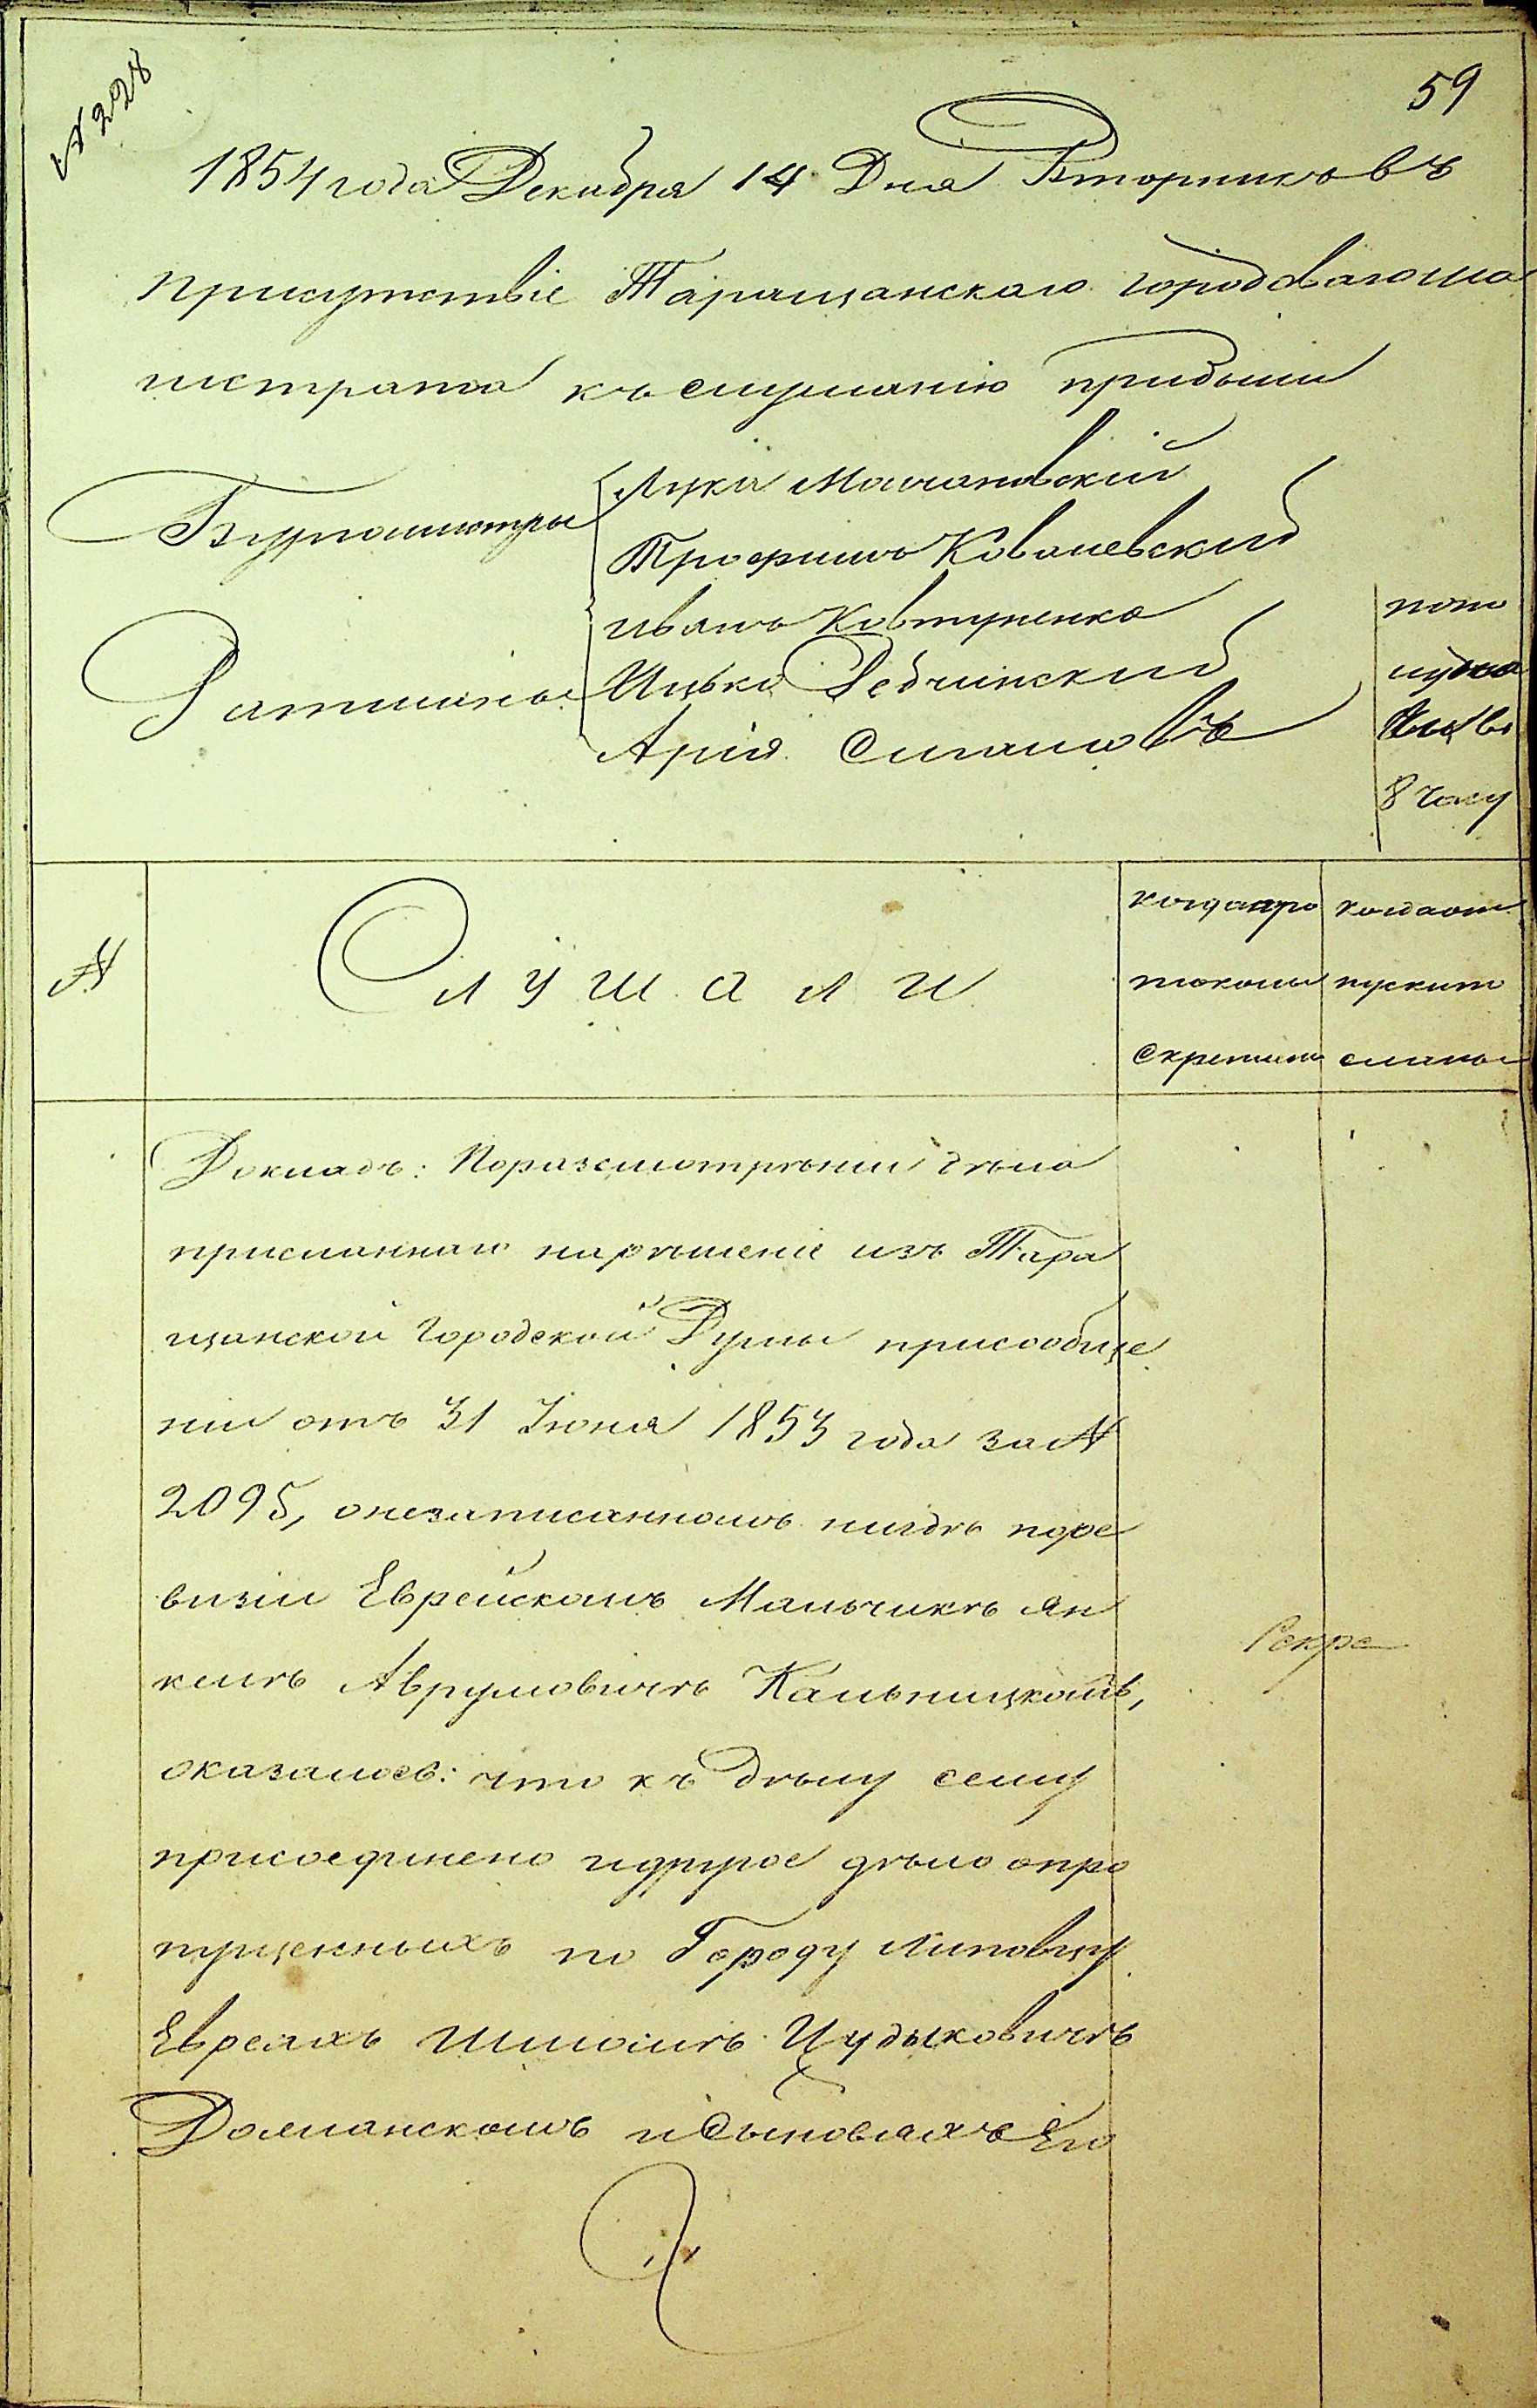 № 228
59
1854 года Декабря 14 Дня Вторникъ въ
присутствіе Таращанскаго городоваго ма
гистрата къ слушанію прибыли
Бургомистры
Лука
Трофимъ Ковалевский
Ратманы
Иванъ Ковтуненко
Ицько
Арія
пополу
8 часу
№
Слушали
когда про
токолъ
скрепленъ
когда от
пускъ от
сланъ
Докладъ: По разсмотрѣніи дѣла
присланнаго на рѣшеніе изъ Тара
щанской Городской Думы при сообще
ніи отъ 31 Іюня 1853 года за №
2095, о незаписанномъ нигдѣ по ре
визіи Еврейскомъ Мальчикѣ Ян
келѣ Аврумовичѣ Кальницкомъ,
оказалось: что къ дѣлу сему
присоединено и другое дѣло о про
пущенныхъ по Городу Липовцу
Евреяхъ Шмолѣ Цудыковичѣ
Долианскомъ и Сыновьяхъ Его
Секре